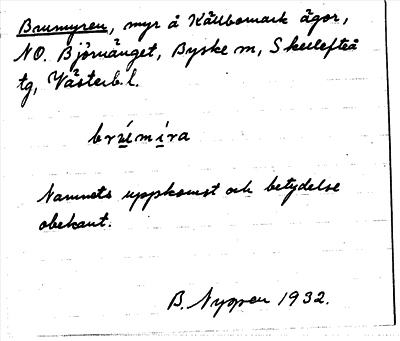 Brumyren, myr å Källbomark ägor,
NO. Björnänget, Byske sn, Skellefteå
tg, Västerb. l.
brúmíra
Namnets uppkomst och betydelse
obekant.
B. Nygren 1932.